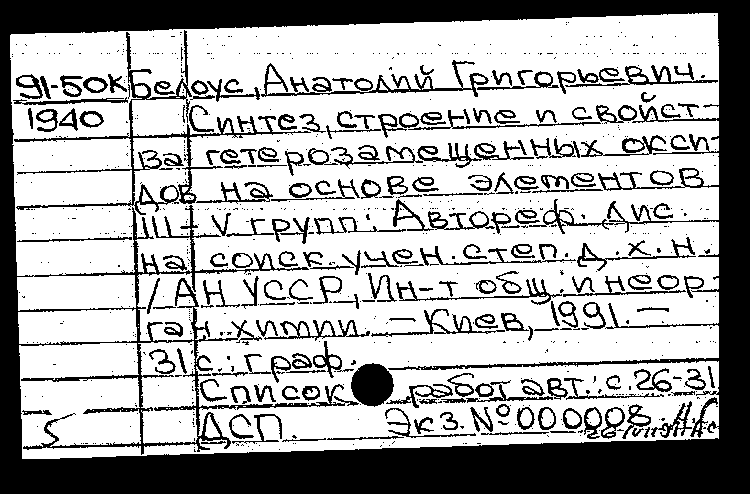 91-50к Белоус, Анатолий Григорьевич.
1940 Синтез, строение и свойст-
ва гетерозамещенных окси-
дов на основе элементов
III-V групп: Автореф. дис.
на соиск. учен. степ. д. х. н.
/ АН УССР, Ин-т общ. и неор-
ган. химии. — Киев, 1991. —
31 с.: граф.
Список работ авт.: с. 26-31
5 ДСП. Экз. № 000008.